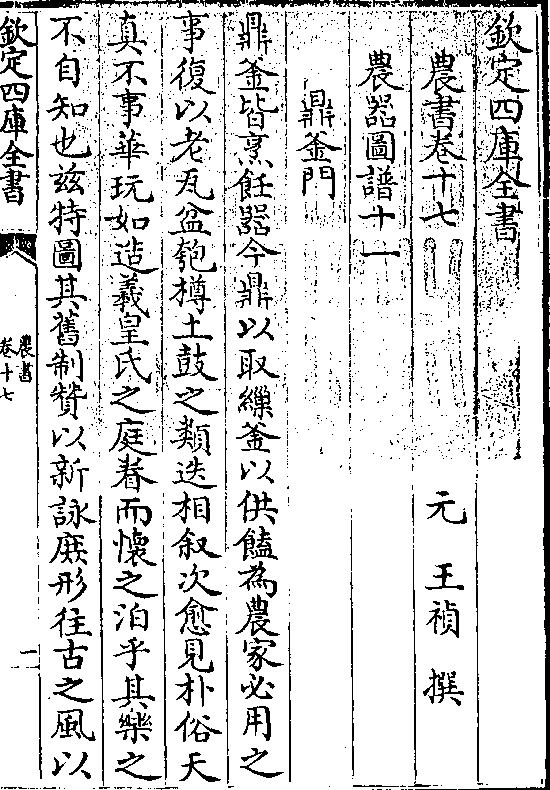 欽定四庫全書
農書卷十七
元 王禎 撰
農器圖譜十一
鼎釜門
鼎釜皆烹飪器今鼎以取繅釜以供饁為農家必用之
事復以老瓦盆匏樽土鼓之類迭相叙次愈見朴俗天
真不事華玩如造羲皇氏之庭眷而懷之泊乎其樂之
不自知也茲特圖其舊制贊以新詠庶形往古之風以
欽定四庫全書
農書
卷十七
二